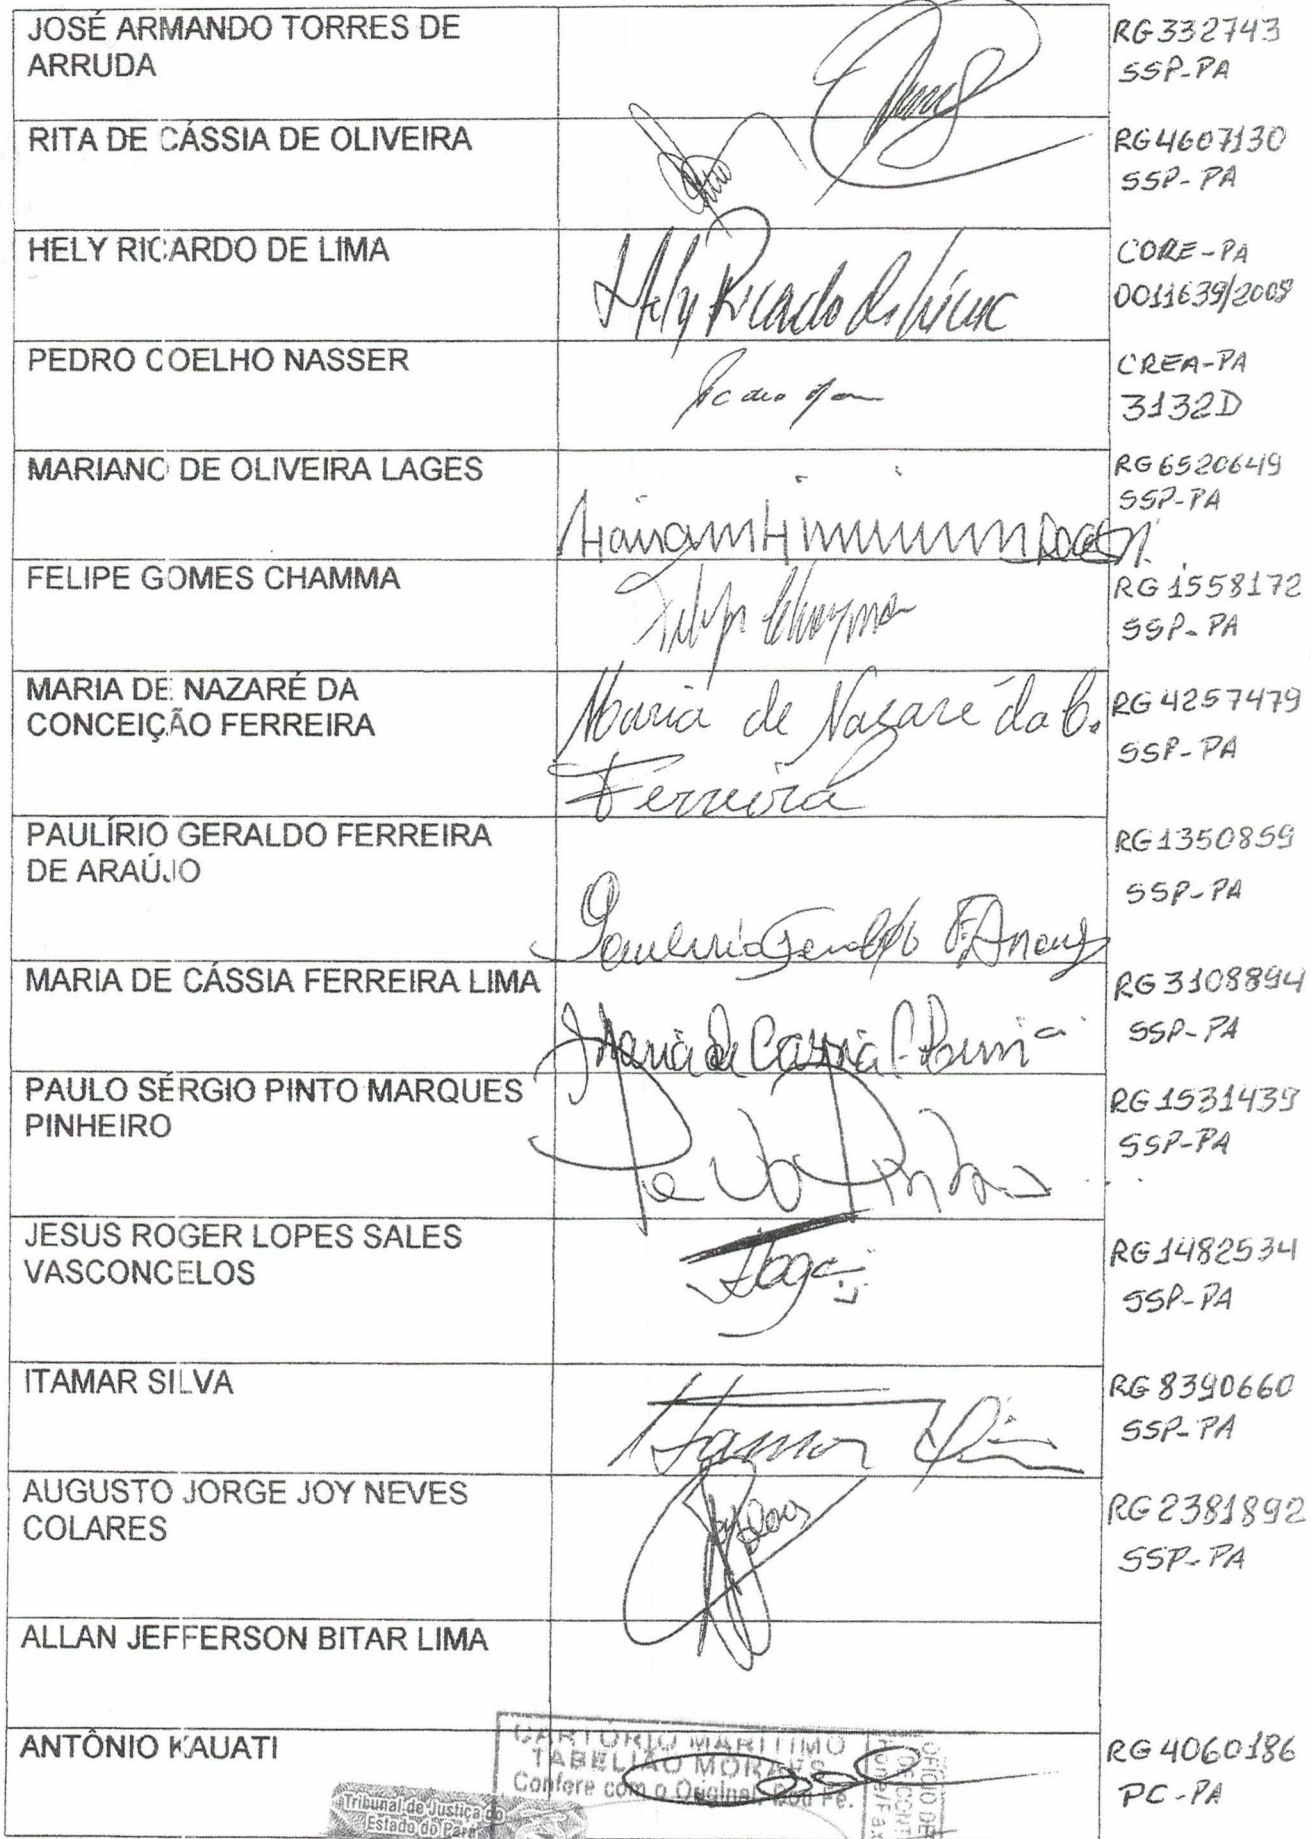 JOSÉ ARMANDO TORRES DE
ARRUDA
RG 332743
SSP-PA
RITA DE CÁSSIA DE OLIVEIRA
RG 4607130
SSP-PA
HELY RICARDO DE LIMA
Hely Ricardo de Lima
CORE-PA
0011639/2008
PEDRO COELHO NASSER
CREA-PA
3132D
MARIANO DE OLIVEIRA LAGES
RG 6520649
SSP-PA
FELIPE GOMES CHAMMA
Felipe Chamma
RG 1558172
SSP-PA
MARIA DE NAZARÉ DA
CONCEIÇÃO FERREIRA
Maria de Nazaré da C.
Ferreira
RG 4257479
SSP-PA
PAULÍRIO GERALDO FERREIRA
DE ARAÚJO
RG 1350859
SSP-PA
MARIA DE CÁSSIA FERREIRA LIMA
Maria de Cassia F.
RG 3108894
SSP-PA
PAULO SÉRGIO PINTO MARQUES
PINHEIRO
RG 1531439
SSP-PA
JESUS ROGER LOPES SALES
VASCONCELOS
RG 1482534
SSP-PA
ITAMAR SILVA
RG 8390660
SSP-PA
AUGUSTO JORGE JOY NEVES
COLARES
RG 2381892
SSP-PA
ALLAN JEFFERSON BITAR LIMA
ANTÔNIO KAUATI
RG 4060186
PC-PA
CARTÓRIO MARÍTIMO
TABELIÃO MORAES
Confere com o Original. Dou Fé.
Tribunal de Justiça do
Estado do Pará